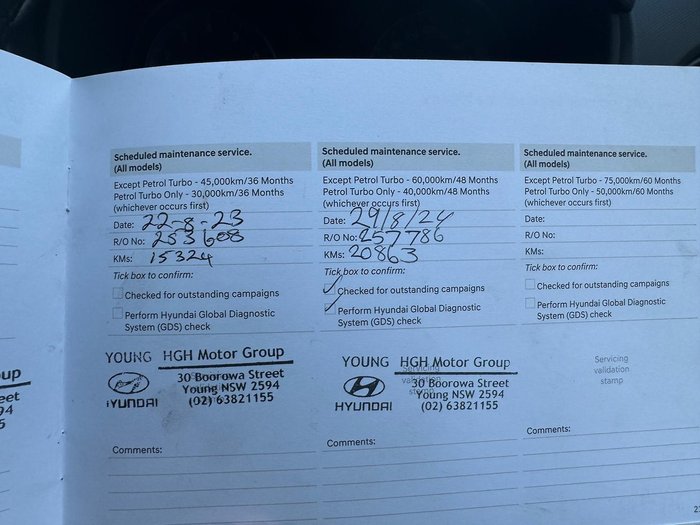 Scheduled maintenance service.
(All models)
Except Petrol Turbo - 45,000km/36 Months
Petrol Turbo Only - 30,000km/36 Months
(whichever occurs first)
Date: 22-8-23
R/O No: 253608
KMs: 15324
Tick box to confirm:
Checked for outstanding campaigns
Perform Hyundai Global Diagnostic
System (GDS) check
YOUNG HGH Motor Group
30 Boorowa Street
Young NSW 2594
HYUNDAI (02) 63821155
Comments:
Scheduled maintenance service.
(All models)
Except Petrol Turbo - 60,000km/48 Months
Petrol Turbo Only - 40,000km/48 Months
(whichever occurs first)
Date: 29/8/24
R/O No: 257786
KMs: 20863
Tick box to confirm:
Checked for outstanding campaigns
Perform Hyundai Global Diagnostic
System (GDS) check
Servicing
validation
stamp
YOUNG HGH Motor Group
30 Boorowa Street
Young NSW 2594
HYUNDAI (02) 63821155
Comments:
Scheduled maintenance service.
(All models)
Except Petrol Turbo - 75,000km/60 Months
Petrol Turbo Only - 50,000km/60 Months
(whichever occurs first)
Date:
R/O No:
KMs:
Tick box to confirm:
Checked for outstanding campaigns
Perform Hyundai Global Diagnostic
System (GDS) check
Servicing
validation
stamp
Comments: